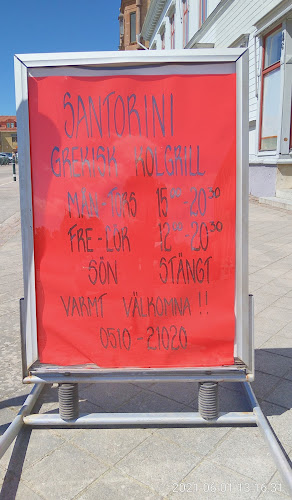 SANTORINI
GREKISK KOLGRILL
MÅN-TORS 15⁰⁰-20³⁰
FRE-LÖR 12⁰⁰-20³⁰
SÖN STÄNGT
VARMT VÄLKOMNA !!
0510-21020
2021-06-01 13:16:31